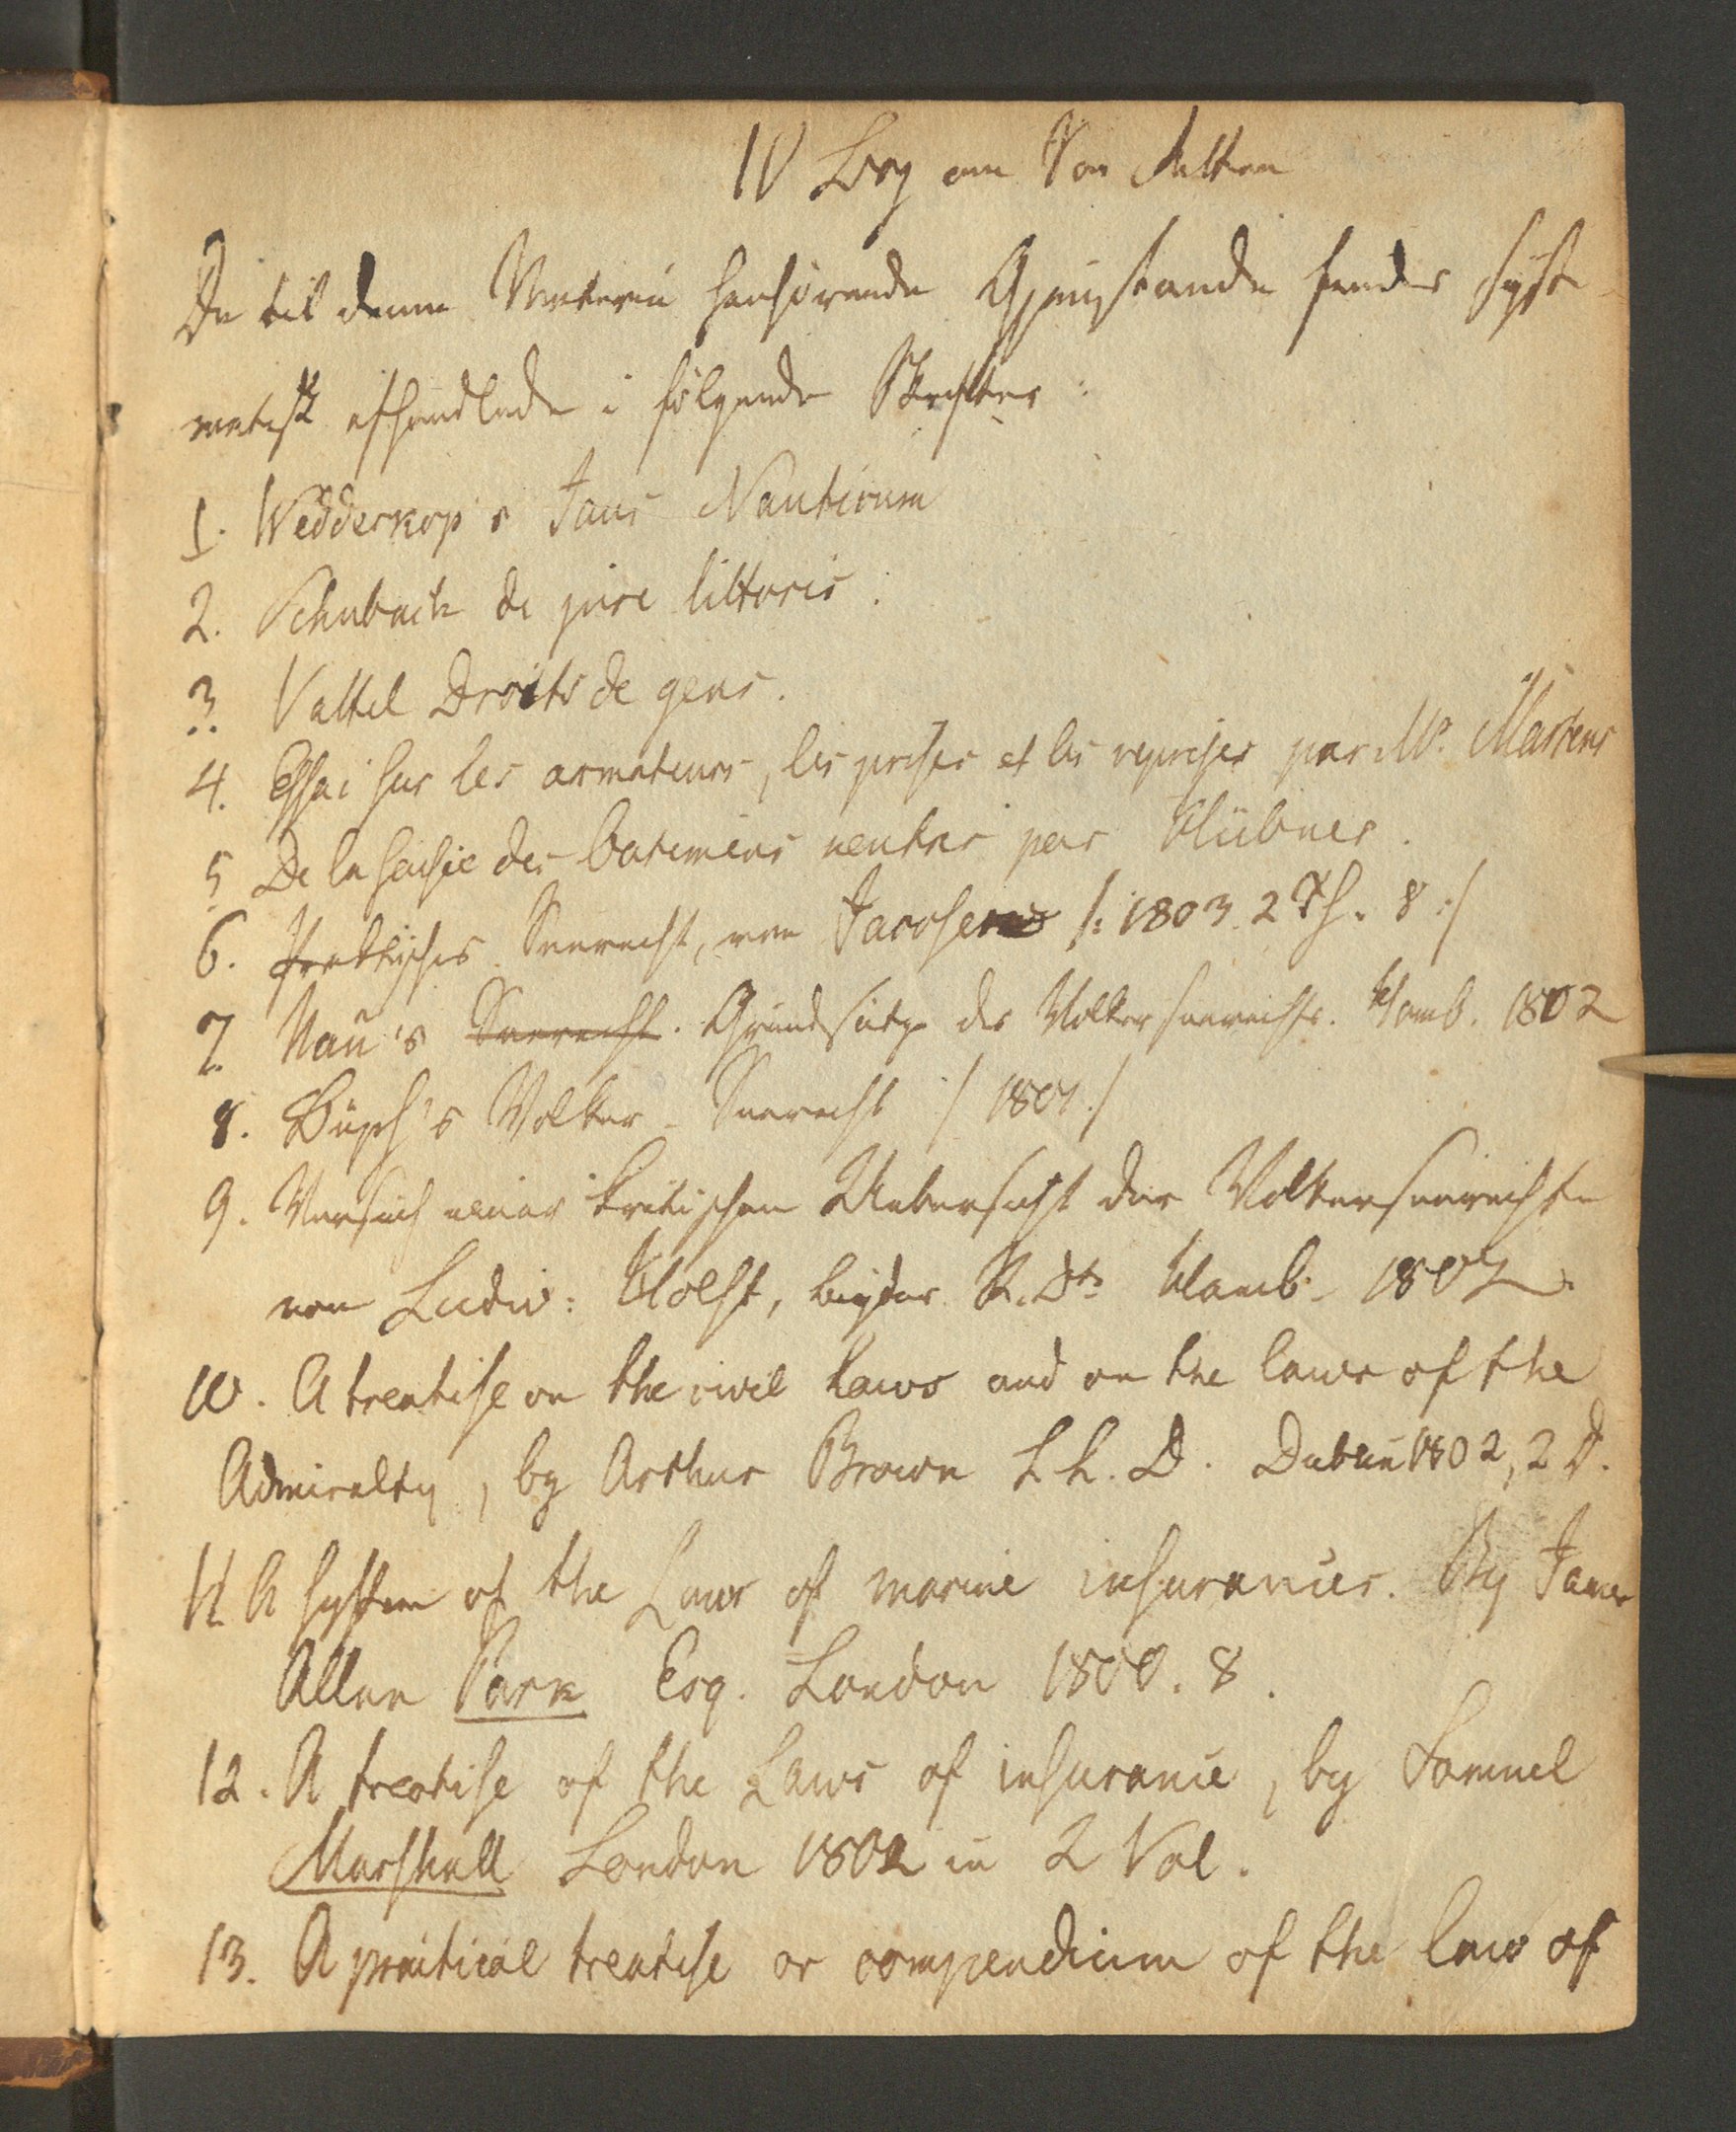 IV Bog om Søe Retten
De til denne Materie henhørende Gjenstande findes syste
matisk afhandlede i følgende Skrifter:
1. Wedderkop's Jaus Nauticum
2. Schuback de jure littoris.
3. Vattel Droits de gens.
4. Essai sur les armateurs, les prises et les reprises par Mr. Martens
5 De la saisie des batimens neutres par Hübner.
6. Praktisches Seerecht, von Jacobsen /: 1803. 2 Th. 8 :/
7. Nau's Seerecht. Grundsätze des Völkerseerechts. Hamb. 1802
8. Büsch's Völker-Seerecht / 1801./
9. Versuch einer kritischen Uebersicht der Völkerseerechte
von Ludw: Holst, beyder R. Dr. Hamb. 1802.
10. A treatise on the civil Laws and on the laws of the
Admiralty, by Arthur Brown L L. D. Dublin 1802, 2 D.
11. A system of the Laws of marine insurances. By James
Allan Park Esq. London 1800. 8.
12. A treatise of the Laws of insurance, by Samuel
Marshall London 1802 in 2 Vol.
13. A practical treatise or compendium of the law of